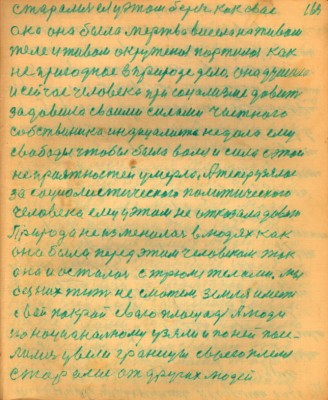 старались у этом береч как свае
она она была мертво висела на живом
теле и живом окружении портилась как
не пригодное в природе дело, она душила
и сейчас человека при социализме давит
задавила своими силами частного
собственника индуалиста не дала ему
свободы чтобы была воля и сила с этой
неприятностей умерло, А теперь взялась
за социалистического политического
человека ему у этом не отказала давить
Природа не изменилась в людях как
она была перед этим человеком так
она и осталась с тремя телами, мы
одних жить не сможем земля имеет
свой покрой свою площадь А люди
по национальному узяли и по ней посе-
лились увели границы своего племени
стерегли от других людей